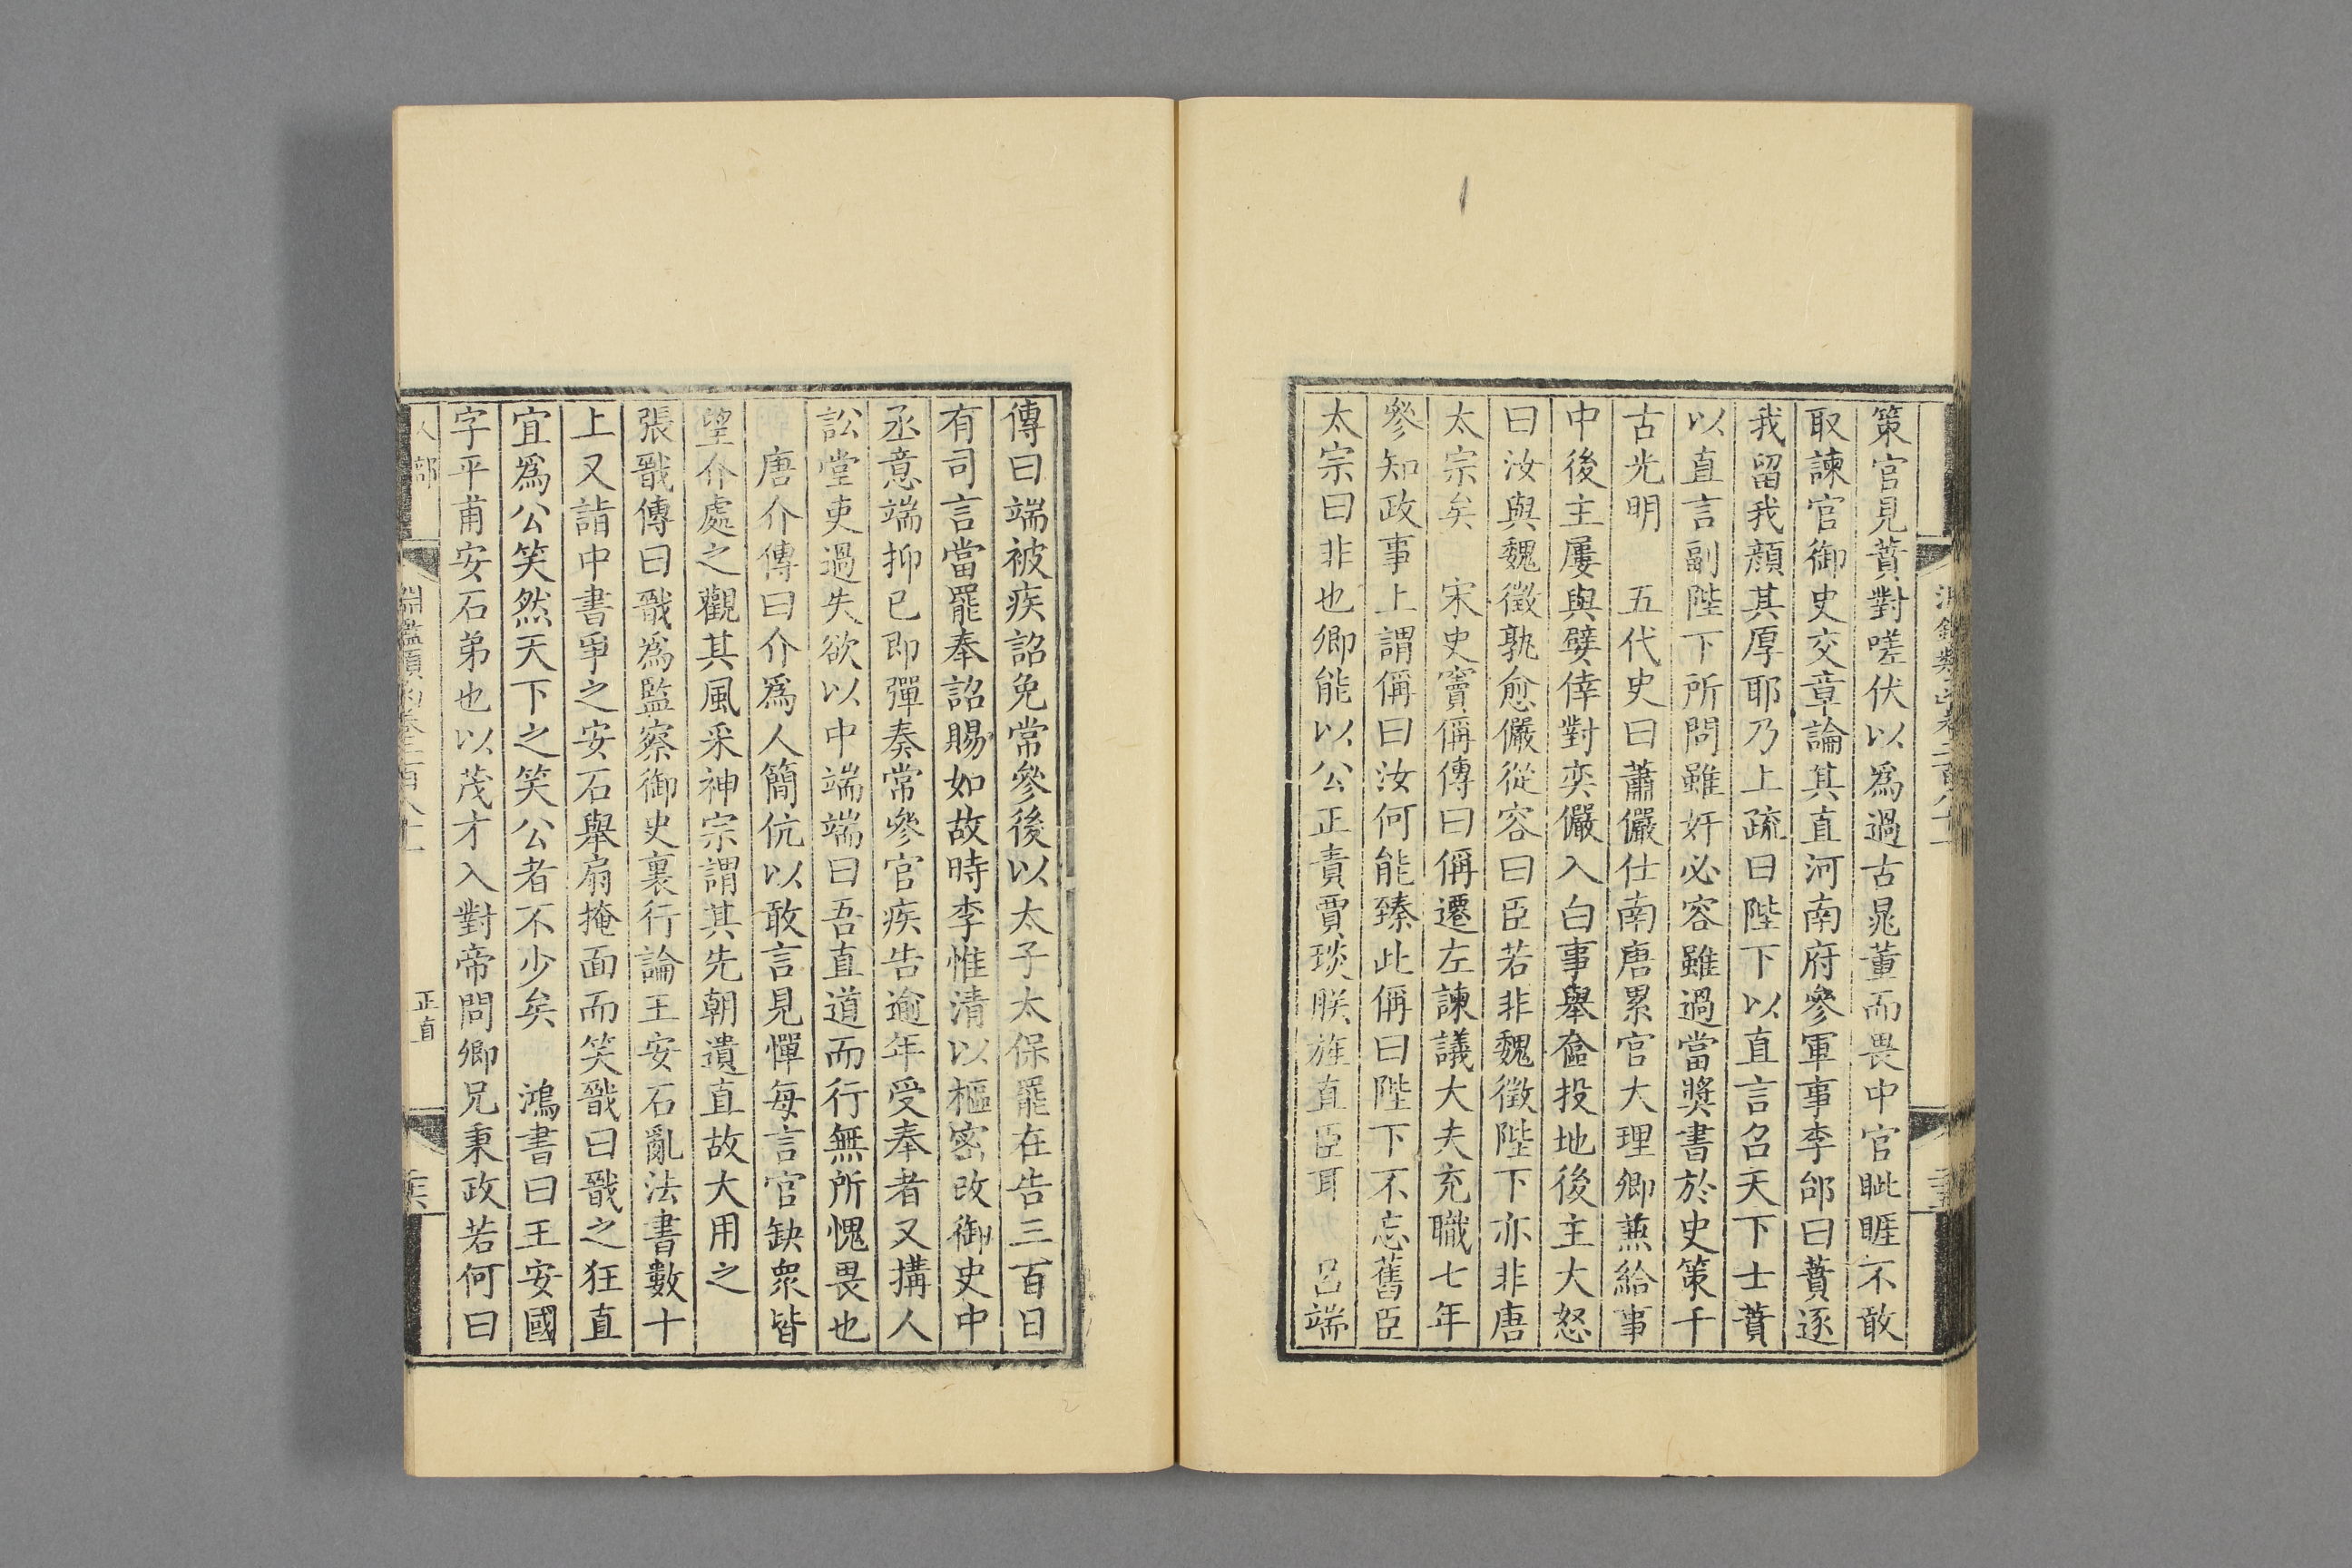 策官見蕡對嗟伏以爲過古晁董而畏中官眦睚不敢
取諫官御史交章論其直河南府參軍事李郃曰蕡逐
我留我顔其厚耶乃上疏曰陛下以直言召天下士蕡
以直言副陛下所問雖奸必容雖過當奬書於史策千
古光明　五代史曰蕭儼仕南唐累官大理卿兼給事
中後主屢與嬖倖對奕儼入白事舉奩投地後主大怒
曰汝與魏徵孰愈儼從容曰臣若非魏徵陛下亦非唐
太宗矣　宋史竇偁傳曰偁遷左諫議大夫充職七年
參知政事上謂偁曰汝何能臻此偁曰陛下不忘舊臣
太宗曰非也卿能以公正責賈琰朕旌直臣耳　呂端
傳曰端被疾詔免常參後以太子太保罷在告三百日
有司言當罷奉詔賜如故時李惟清以樞密改御史中
丞意端抑已即彈奏常參官疾告逾年受奉者又搆人
訟堂吏過失欲以中端端曰吾直道而行無所愧畏也
唐介傳曰介爲人簡伉以敢言見憚每言官缺衆皆
望介處之觀其風采神宗謂其先朝遺直故大用之
張戩傳曰戩爲監察御史裏行論王安石亂法書數十
上又詣中書爭之安石舉扇掩面而笑戩曰戩之狂直
宜爲公笑然天下之笑公者不少矣　鴻書曰王安國
字平甫安石弟也以茂才入對帝問卿兄秉政若何曰
人部
淵鑑類函卷二百八十
正直